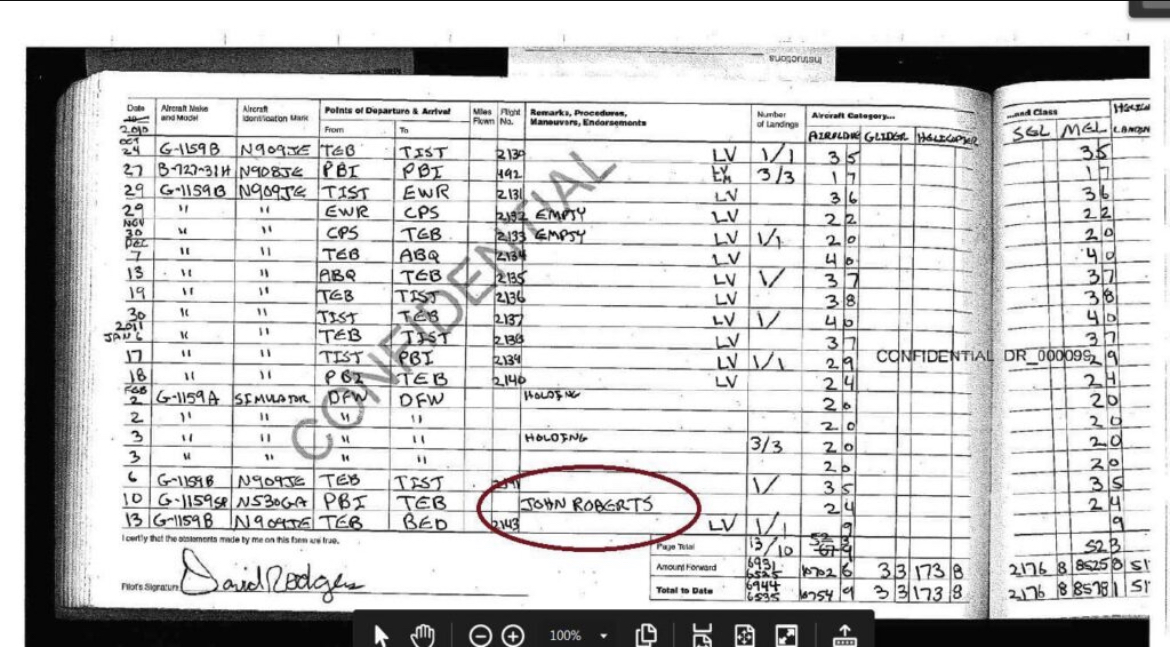 Instructions
Date
Aircraft Make and Model
Aircraft Identification Mark
Points of Departure & Arrival
Miles Flown
Flight No.
Remarks, Procedures, Maneuvers, Endorsements
Number of Landings
Aircraft Category...
...and Class
2010
From
To
AIRPLANE GLIDER HELICOPTER
SEL MEL
OCT 24 G-1159B N909JE TEB TIST 2130 LV 1/1 3 5 35
27 B-727-31H N908JE PBI PBI 492 3/3 1 7 17
29 G-1159B N909JE TIST EWR 2131 LV 3 6 36
29 " " EWR CPS 2132 EMPTY LV 2 2 22
NOV 30 " " CPS TEB 2133 EMPTY LV 1/1 2 0 20
DEC 7 " " TEB ABQ 2134 LV 4 0 40
13 " " ABQ TEB 2135 LV 1/ 3 7 37
19 " " TEB TIST 2136 LV 3 8 38
30 " " TIST TEB 2137 LV 1/ 4 0 40
2011 JAN 6 " " TEB TIST 2138 LV 3 7 37
17 " " TIST PBI 2139 LV 1/1 2 9 29
CONFIDENTIAL DR_000099
18 " " PBI TEB 2140 LV 2 4 24
FEB 2 G-1159A SIMULATOR DFW DFW HOLDING 2 0 20
2 " " " " 2 0 20
3 " " " " HOLDING 3/3 2 0 20
3 " " " " 2 0 20
6 G-1159B N909JE TEB TIST 1/ 3 5 35
10 G-1159SP N530GA PBI TEB JOHN ROBERTS 2 4 24
13 G-1159B N909JE TEB BED 2143 LV 1/1 9 9
CONFIDENTIAL
I certify that the statements made by me on this form are true.
Page Total 13/10 52 3 523
Amount Forward 6931 6525 6702 6 3 3 173 8 2176 8 8525 8 51
Pilot's Signature David Rodgers
Total to Date 6944 6535 6754 9 3 3 173 8 2176 8 8578 1 51
100%